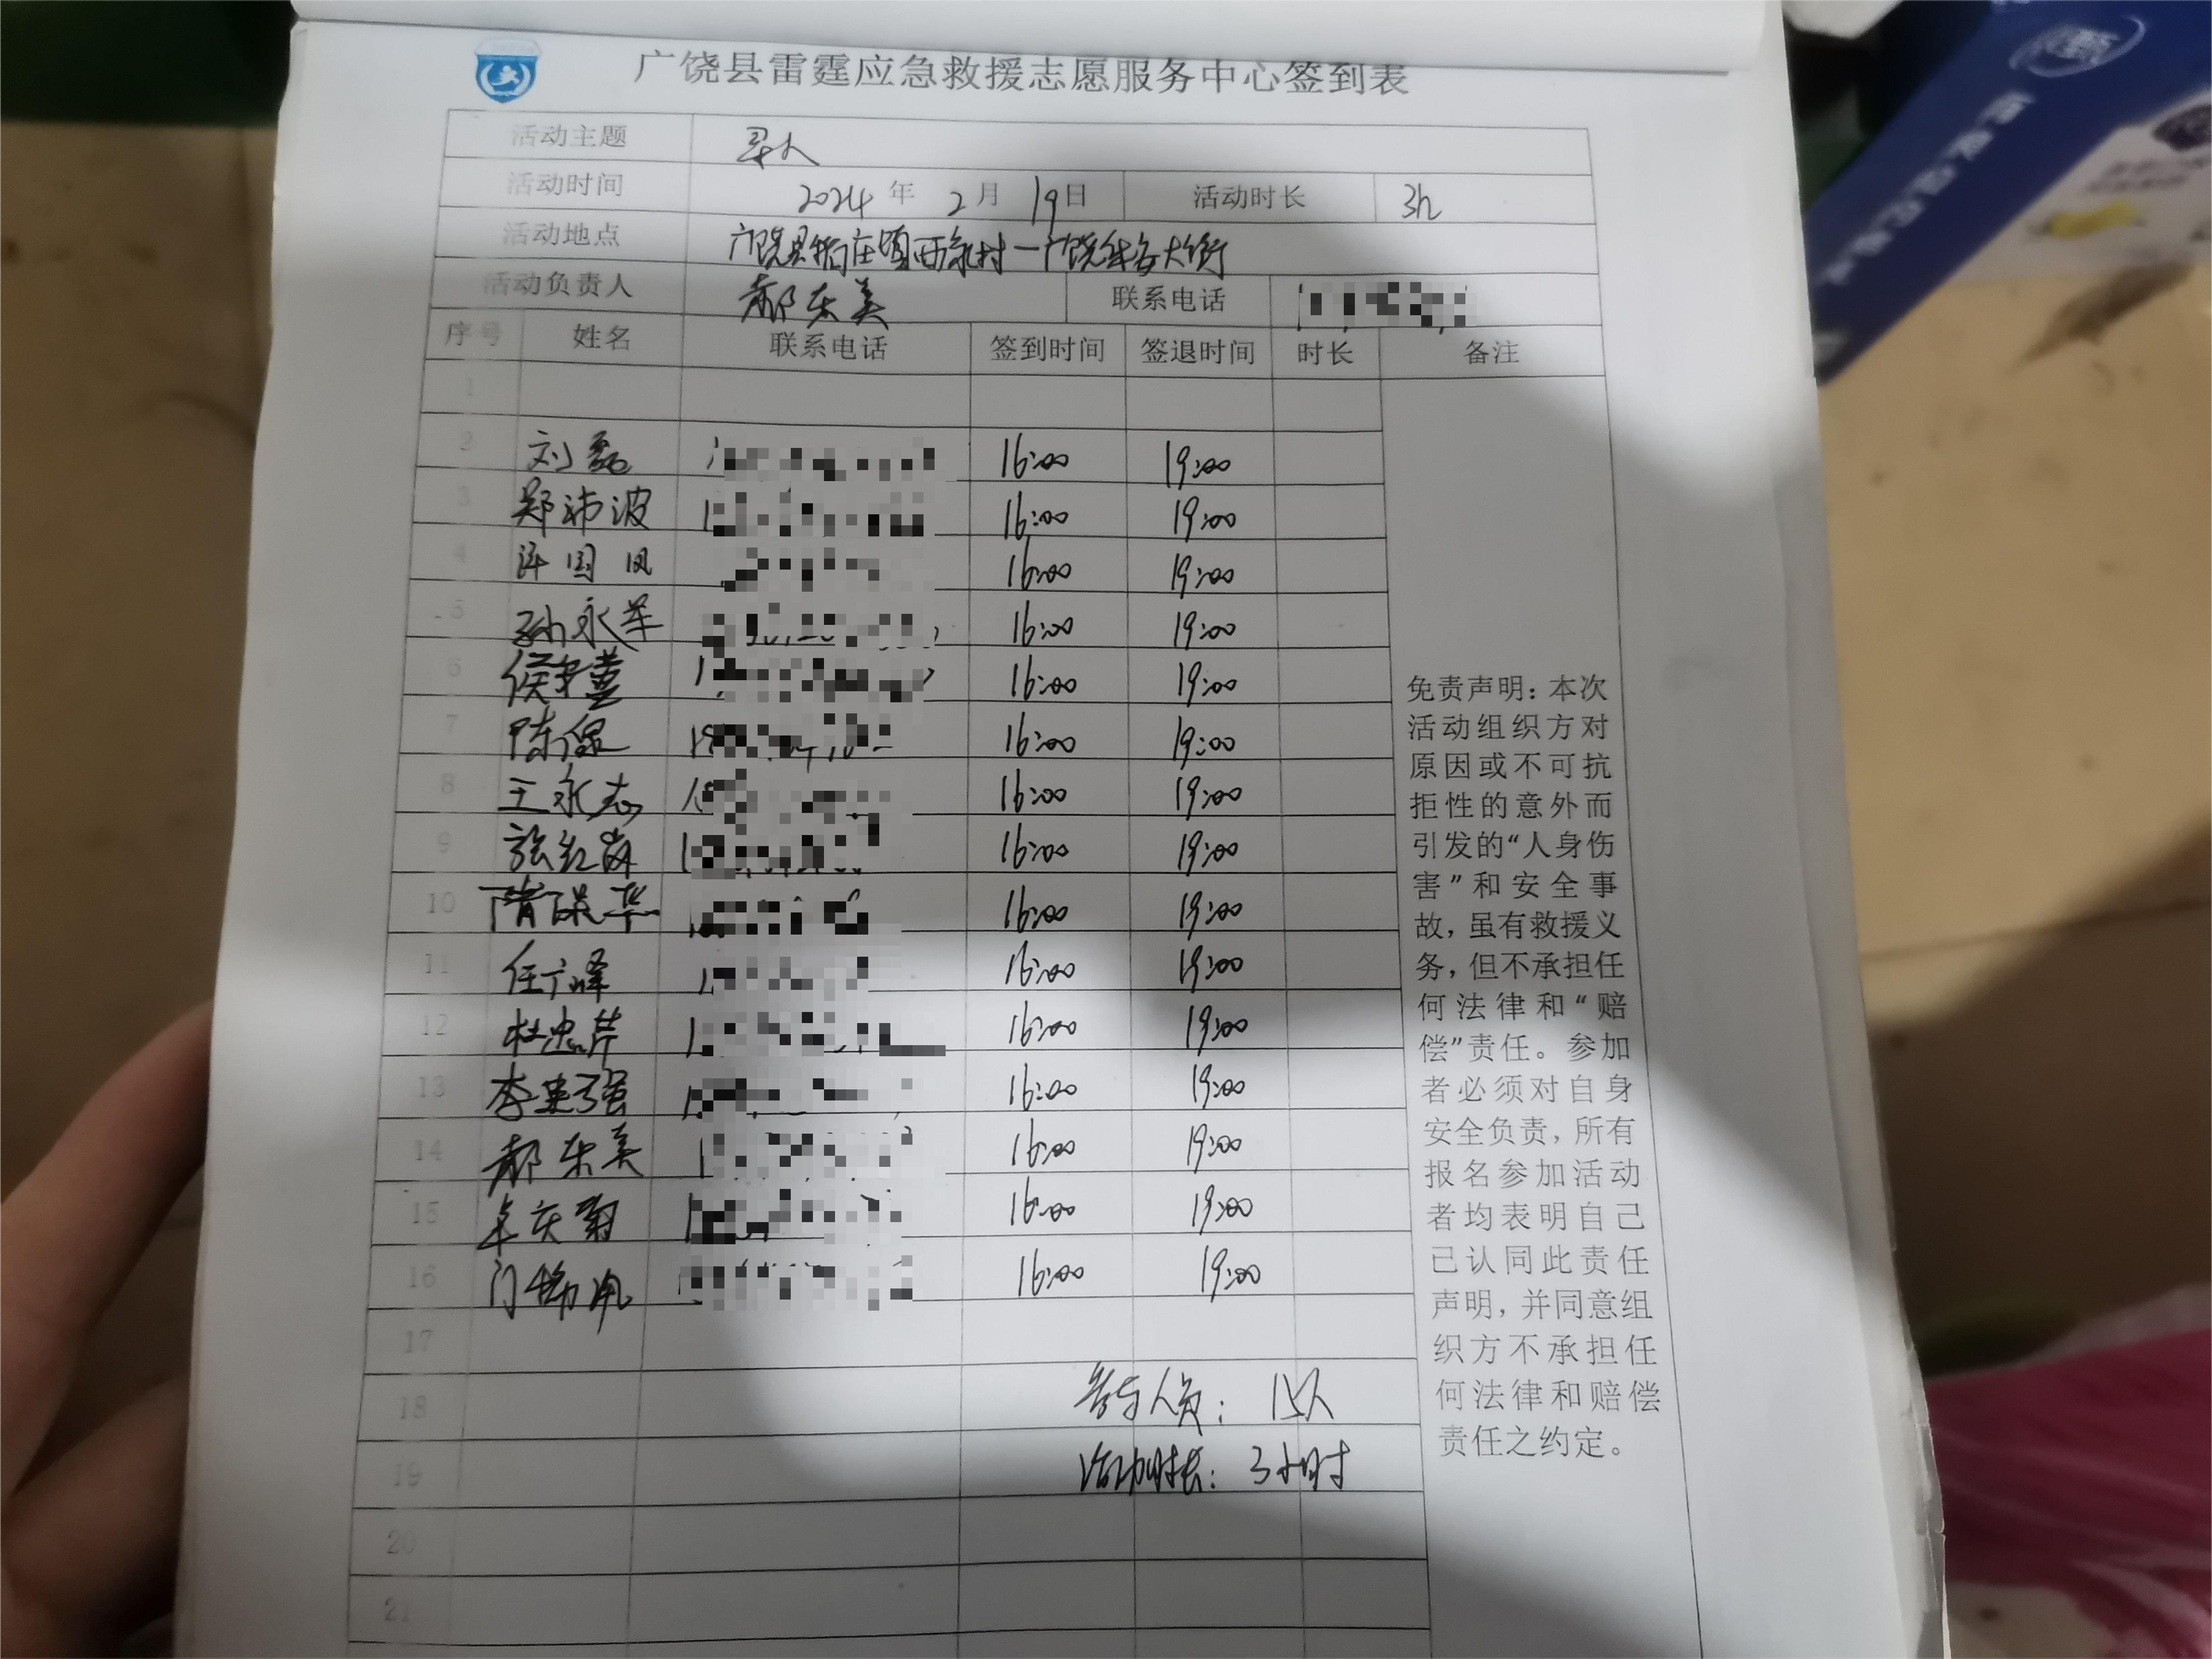 广饶县雷霆应急救援志愿服务中心签到表
活动主题 寻人
活动时间 2024 年 2 月 19 日 活动时长 3h
活动地点 广饶县稻庄镇西 村一广饶 大街
活动负责人 郝东美 联系电话
序号 姓名 联系电话 签到时间 签退时间 时长 备注
1
2 刘磊 16:00 19:00
3 郑沛波 16:00 19:00
4 国凤 16:00 19:00
5 孙永军 16:00 19:00
6 侯 16:00 19:00
7 陈 16:00 19:00
8 王永志 16:00 19:00
9 张红 16:00 19:00
10 隋 华 16:00 19:00
11 任广峰 16:00 19:00
12 杜忠芹 16:00 19:00
13 李 强 16:00 19:00
14 郝东美 16:00 19:00
15 庆菊 16:00 19:00
16 门 凤 16:00 19:00
17
18 参与人员：15人
19 活动时长：3小时
20
21
免责声明：本次
活动组织方对
原因或不可抗
拒性的意外而
引发的“人身伤
害”和安全事
故，虽有救援义
务，但不承担任
何法律和“赔
偿”责任。参加
者必须对自身
安全负责，所有
报名参加活动
者均表明自己
已认同此责任
声明，并同意组
织方不承担任
何法律和赔偿
责任之约定。